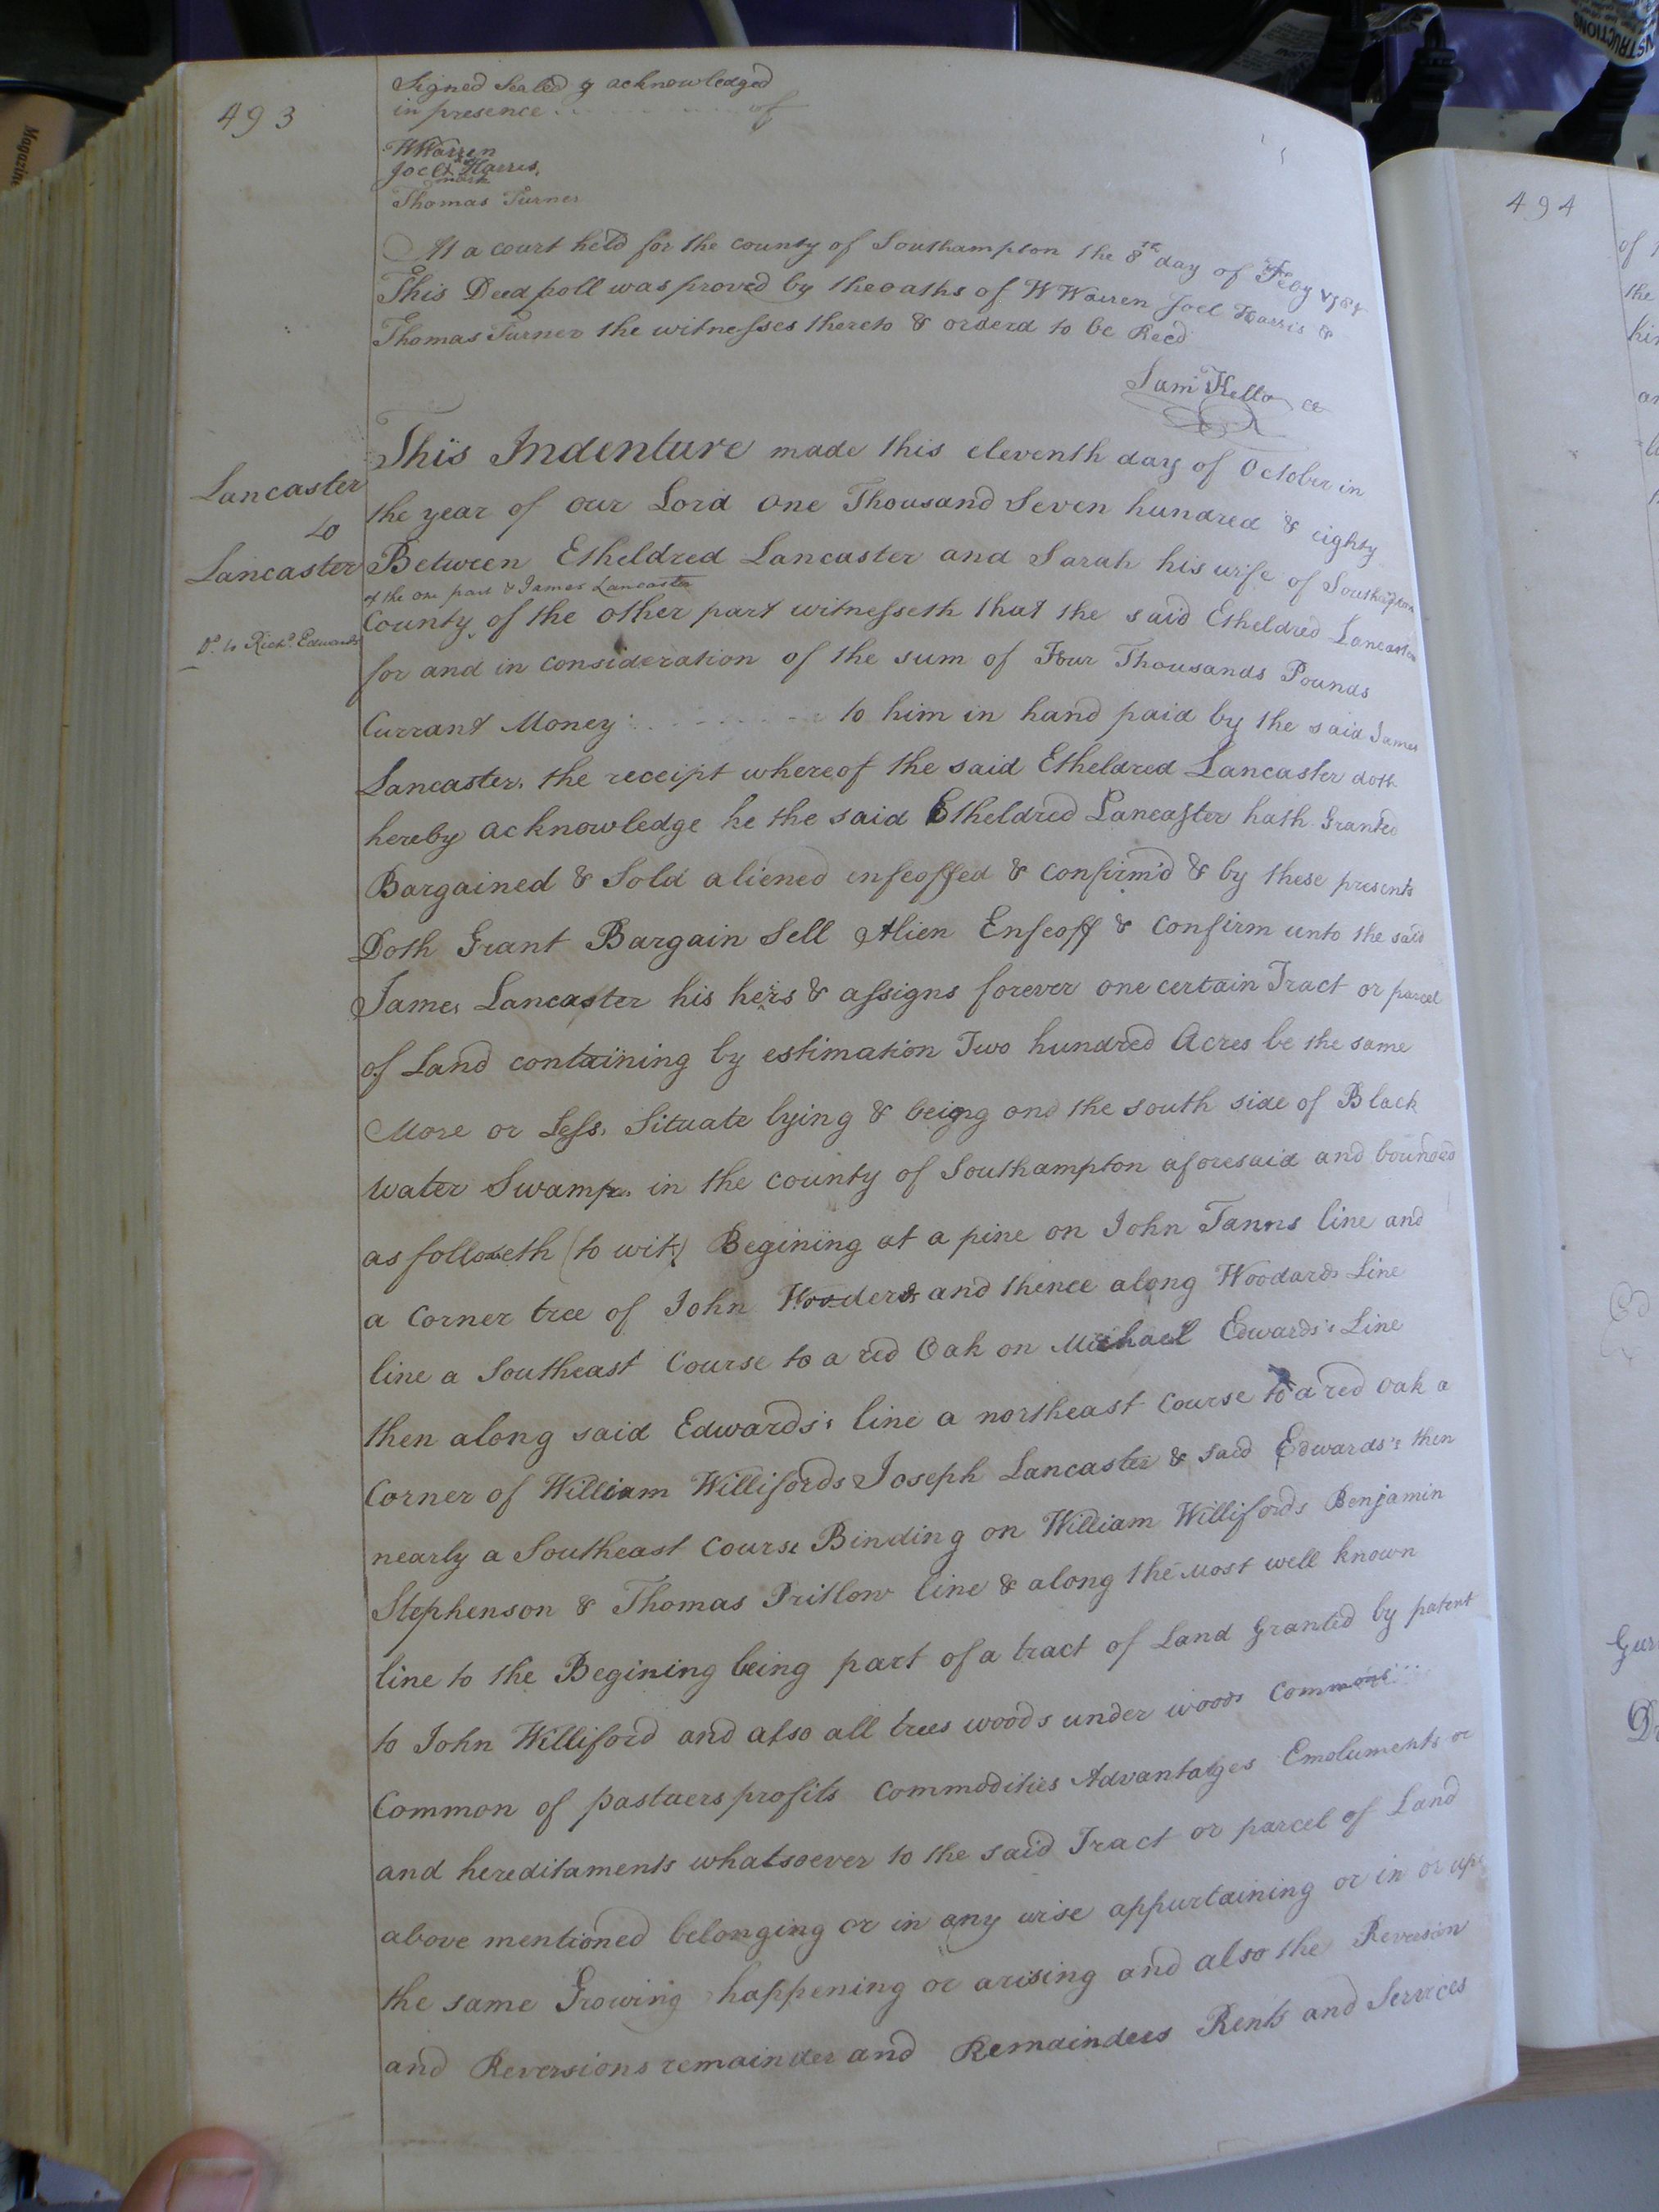 493
Signed Sealed & acknowledged
in presence of
W Warren
Joel Harris
mark
Thomas Turner
At a court held for the county of Southampton the 8th day of Feby
This Deed poll was proved by the oaths of W Warren Joel Harris &
Thomas Turner the witnesses thereto & orderd to be Recd
Sam Kello
Lancaster
to
Lancaster
Do. to Richd. Edwards
This Indenture made this eleventh day of October in
the year of our Lord One Thousand Seven hundred & eighty
Between Etheldred Lancaster and Sarah his wife of Southampton
of the one part & James Lancaster
County of the other part witnesseth that the said Etheldred Lancaster
for and in consideration of the sum of Four Thousands Pounds
Currant Money to him in hand paid by the said James
Lancaster, the receipt whereof the said Etheldred Lancaster doth
hereby acknowledge he the said Etheldred Lancaster hath Granted
Bargained & Sold aliened enfeoffed & confirm'd & by these presents
Doth Grant Bargain Sell Alien Enfeoff & Confirm unto the said
James Lancaster his heirs & assigns forever one certain Tract or parcel
of Land containing by estimation Two hundred Acres be the same
More or Less, Situate lying & being ond the south side of Black
Water Swamp in the county of Southampton aforesaid and bounded
as followeth (to wit) Begining at a pine on John Tanns line and
a Corner tree of John and thence along Woodards Line
line a Southeast Course to a red Oak on Michael Edwards's Line
then along said Edwards's line a northeast Course to a red Oak a
Corner of William Willifords Joseph Lancaster & said Edwards's then
nearly a Southeast Course Binding on William Willifords Benjamin
Stephenson & Thomas Pritlow line & along the Most well known
line to the Begining being part of a tract of Land Granted by patent
to John Williford and also all trees woods under woods Commons
Common of pastuers profits Commodities Advantages Emoluments or
and hereditaments whatsoever to the said Tract or parcel of Land
above mentioned belonging or in any wise appurtaining or in or upon
the same Growing happening or arising and also the Reversion
and Reversions remainder and Remainders Rents and Services
494